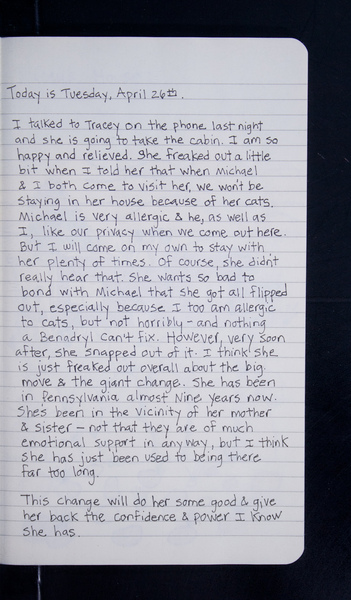 Today is Tuesday, April 26th.
I talked to Tracey on the phone last night
and she is going to take the cabin. I am so
happy and relieved. She freaked out a little
bit when I told her that when Michael
& I both come to visit her, we won't be
staying in her house because of her cats.
Michael is very allergic & he, as well as
I, like our privacy when we come out here.
But I will come on my own to stay with
her plenty of times. Of course, she didn't
really hear that. She wants so bad to
bond with Michael that she got all flipped
out, especially because I too am allergic
to cats, but not horribly - and nothing
a Benadryl can't fix. However, very soon
after, she snapped out of it. I think she
is just freaked out overall about the big
move & the giant change. She has been
in Pennsylvania almost Nine years now.
She's been in the vicinity of her mother
& sister - not that they are of much
emotional support in anyway, but I think
she has just been used to being there
far too long.
This change will do her some good & give
her back the confidence & power I know
she has.